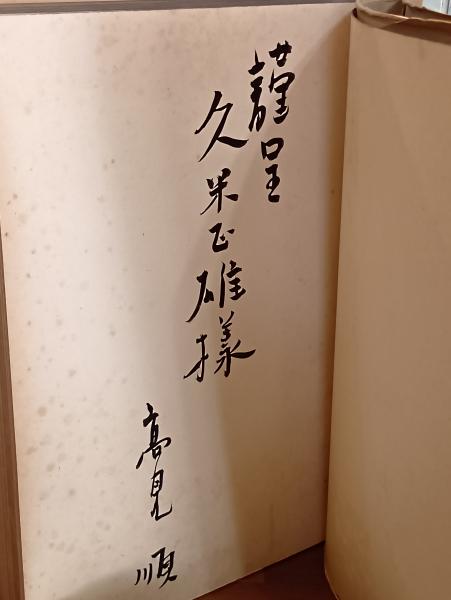 謹呈
久米正雄様
高見順